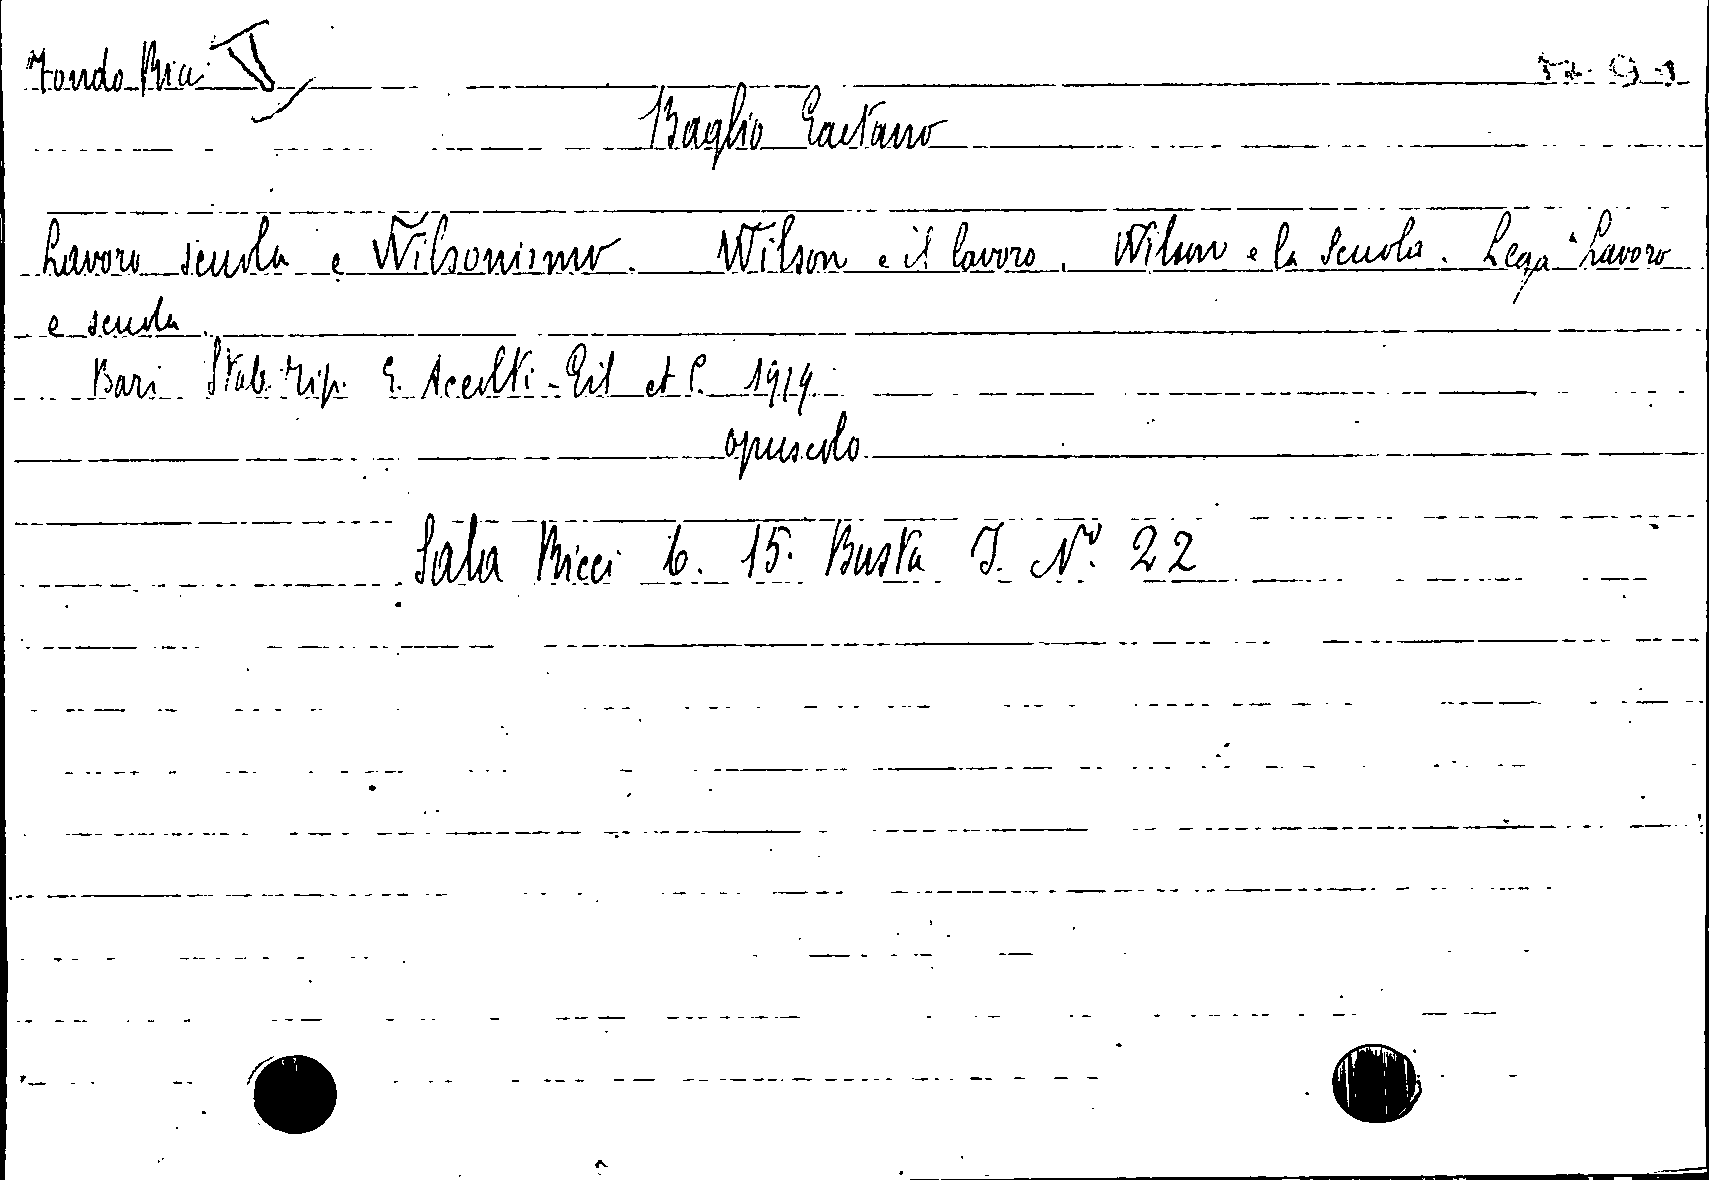 Fondo Ric. V
Baglio Gaetano
Lavoro scuola e Wilsonismo. Wilson e il lavoro. Wilson e la scuola. Lega "Lavoro
e scuola.
Bari Stab. Tip. G. Accolti-Gil et C. 1919.
opuscolo
Sala Ricci b. 15. Busta I. N° 22